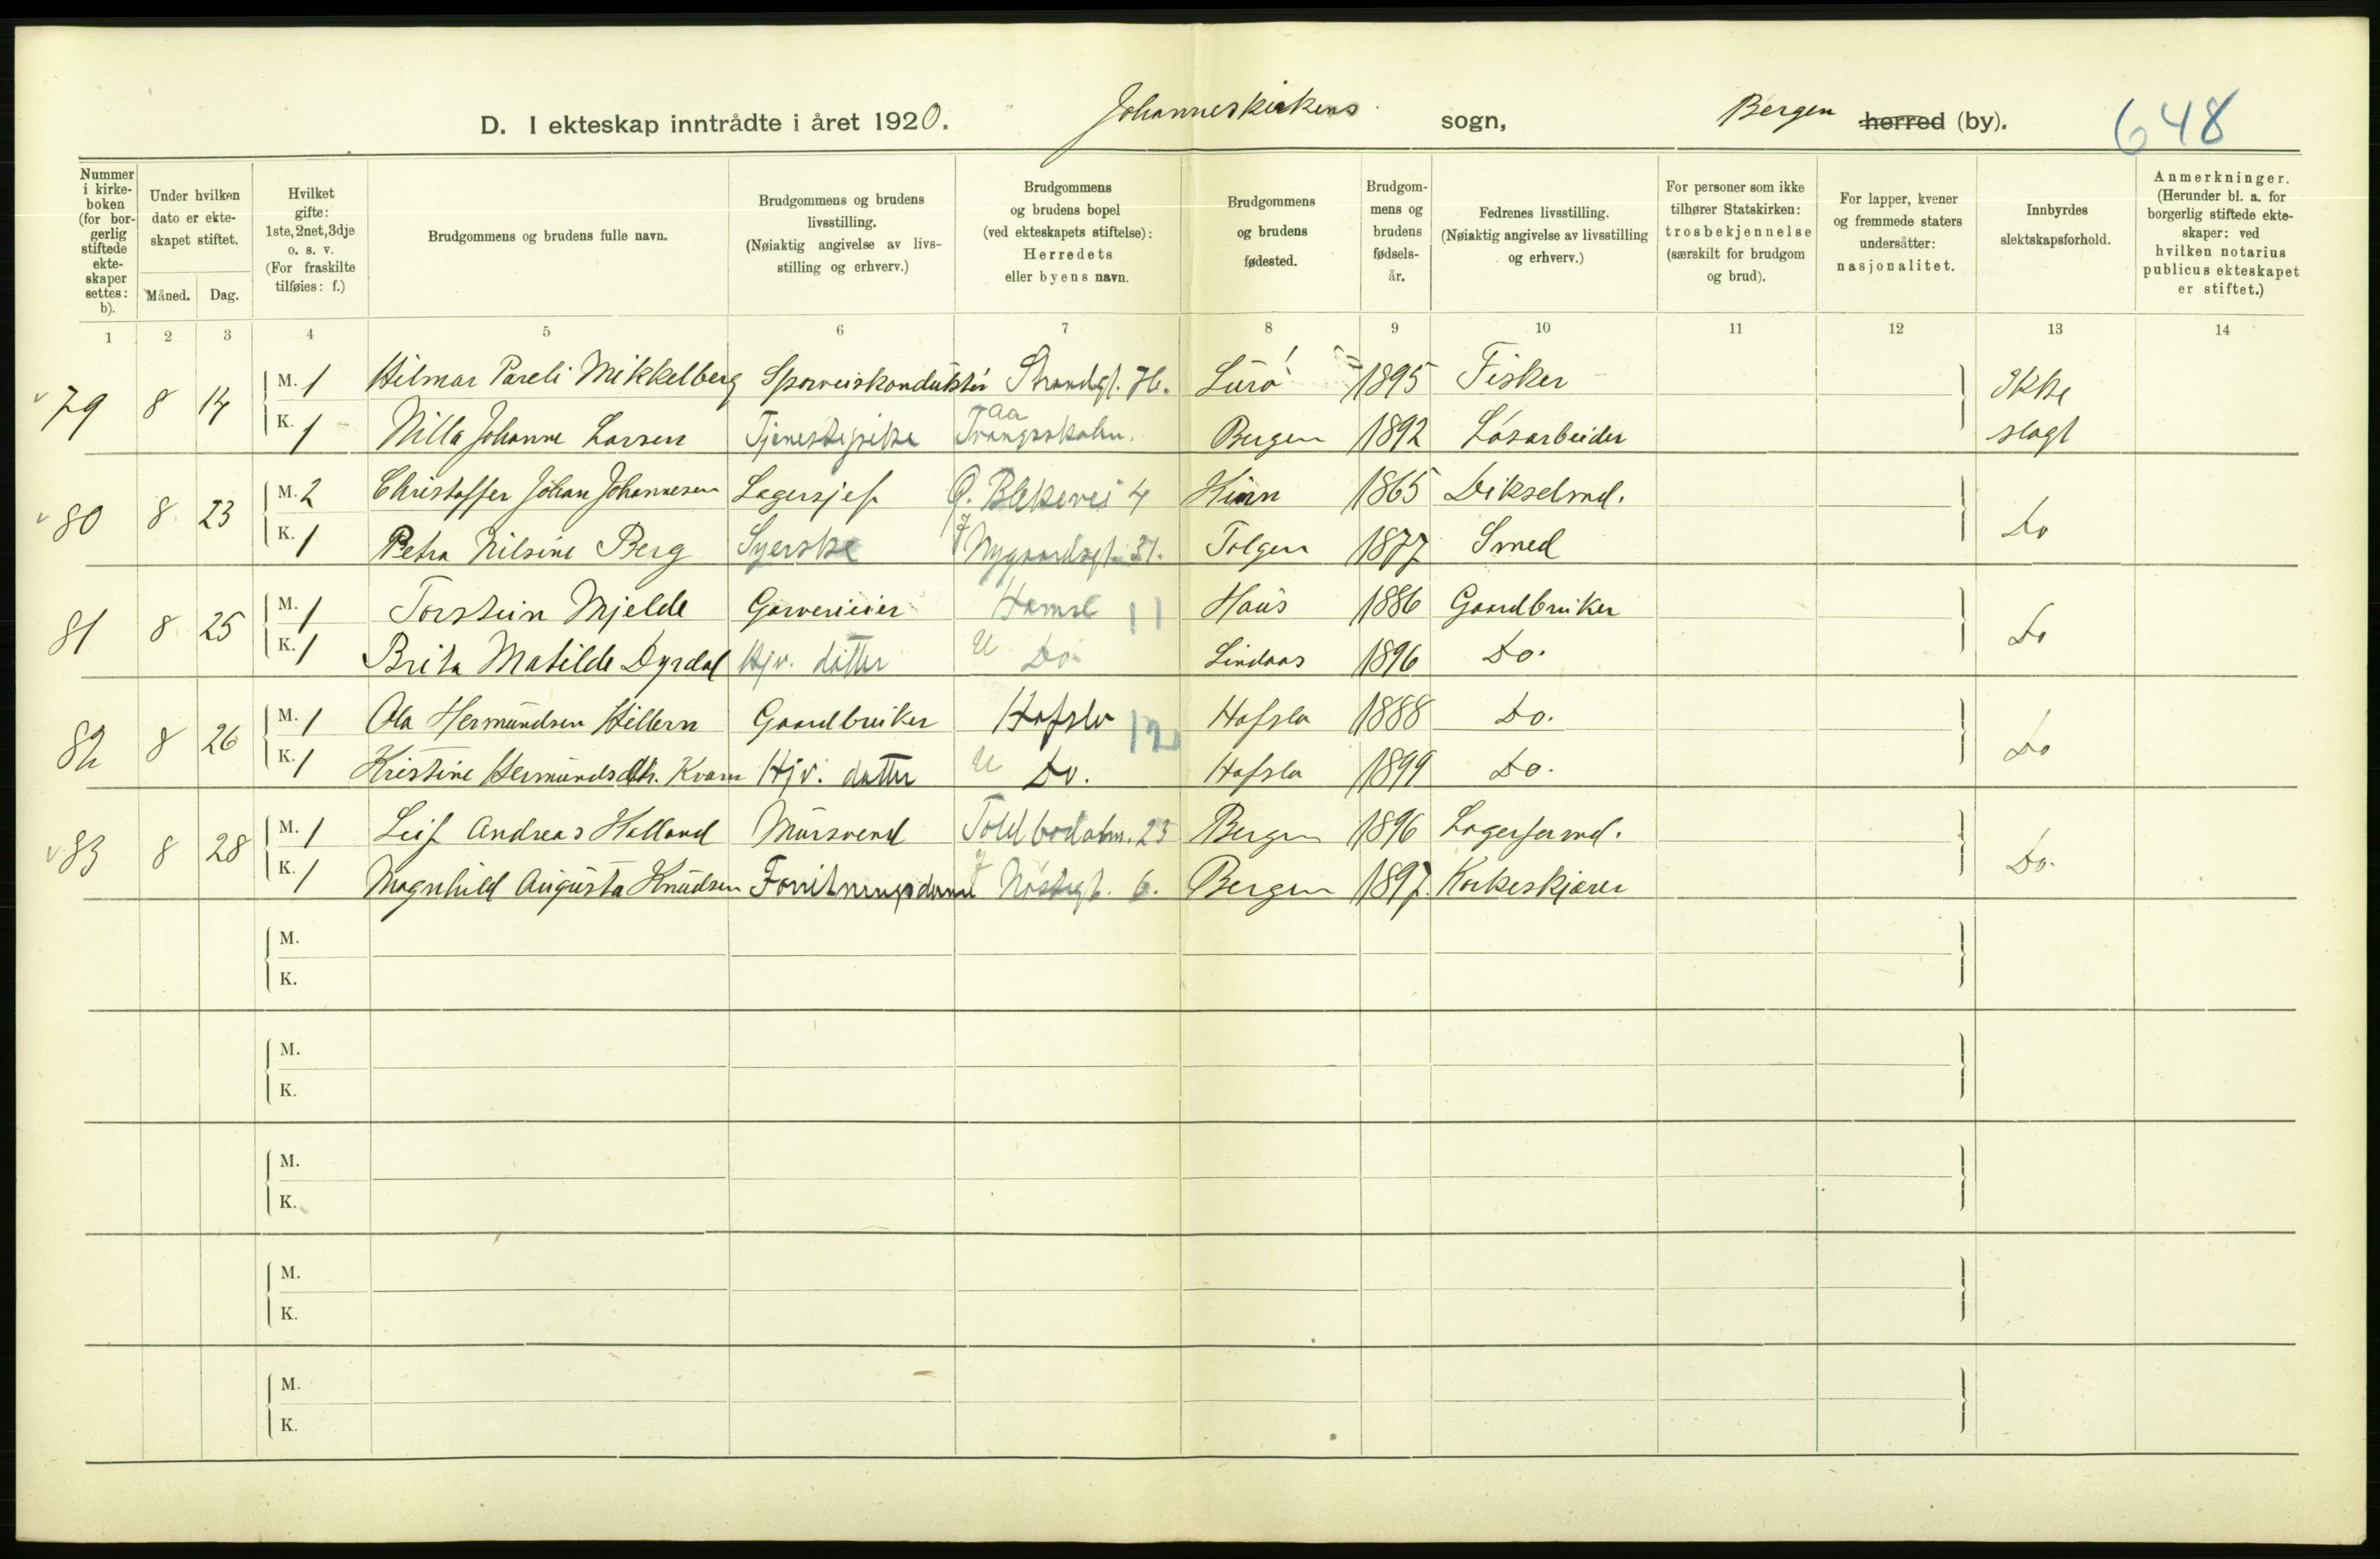 D. I ekteskap inntrådte i året 1920. Johanneskirkens sogn, Bergen herred (by). 648
Nummer i kirkeboken (for borgerlig stiftede ekteskaper settes: b).
Under hvilken dato er ekteskapet stiftet.
Måned. Dag.
Hvilket gifte: 1ste, 2net, 3dje o. s. v. (For fraskilte tilføies: f.)
Brudgommens og brudens fulle navn.
Brudgommens og brudens livsstilling. (Nøiaktig angivelse av livsstilling og erhverv.)
Brudgommens og brudens bopel (ved ekteskapets stiftelse): Herredets eller byens navn.
Brudgommens og brudens fødested.
Brudgommens og brudens fødselsår.
Fedrenes livsstilling. (Nøiaktig angivelse av livsstilling og erhverv.)
For personer som ikke tilhører Statskirken: trosbekjennelse (særskilt for brudgom og brud).
For lapper, kvener og fremmede staters undersåtter: nasjonalitet.
Innbyrdes slektskapsforhold.
Anmerkninger. (Herunder bl. a. for borgerlig stiftede ekteskaper: ved hvilken notarius publicus ekteskapet er stiftet.)
1 2 3 4 5 6 7 8 9 10 11 12 13 14
79 8 14 M. 1 Hilmar Pareli Mikkelberg Sporveiskonduktør Strandgt. Lurö 1895 Fisker Ikke
K. 1 Nilla Johanne Larsen Tjenestepike Bergen 1892 Løsarbeider slagt
80 8 23 M. 2 Christoffer Johan Johannesen Lagersjef 4 Kinn 1865 Dikselmd. Do
K. 1 Petra Nilsine Berg Syerske Nygaardsgt. 31. Tolgen 1877 Smed
81 8 25 M. 1 Torstein Mjelde Garverieier Hamre 11 Haus 1886 Gaardbruker Do
K. 1 Brita Matilde Dyrdal Hjv. datter U Do. Lindaas 1896 Do.
82 8 26 M. 1 Ola Hermundsen Hillern Gaardbruker Hafslo 12 Hafslo 1888 Do. Do
K. 1 Kristine Hermundsdtr. Kvam Hjv. datter U Do. Hafslo 1899 Do.
83 8 28 M. 1 Leif Andreas Halland Mursvend Toldbodalm. 25 Bergen 1896 Lagerformd. Do.
K. 1 Magnhild Augusta Knudsen Forretningsdame Nøstegt. 6. Bergen 1897 Korkeskjærer
M.
K.
M.
K.
M.
K.
M.
K.
M.
K.